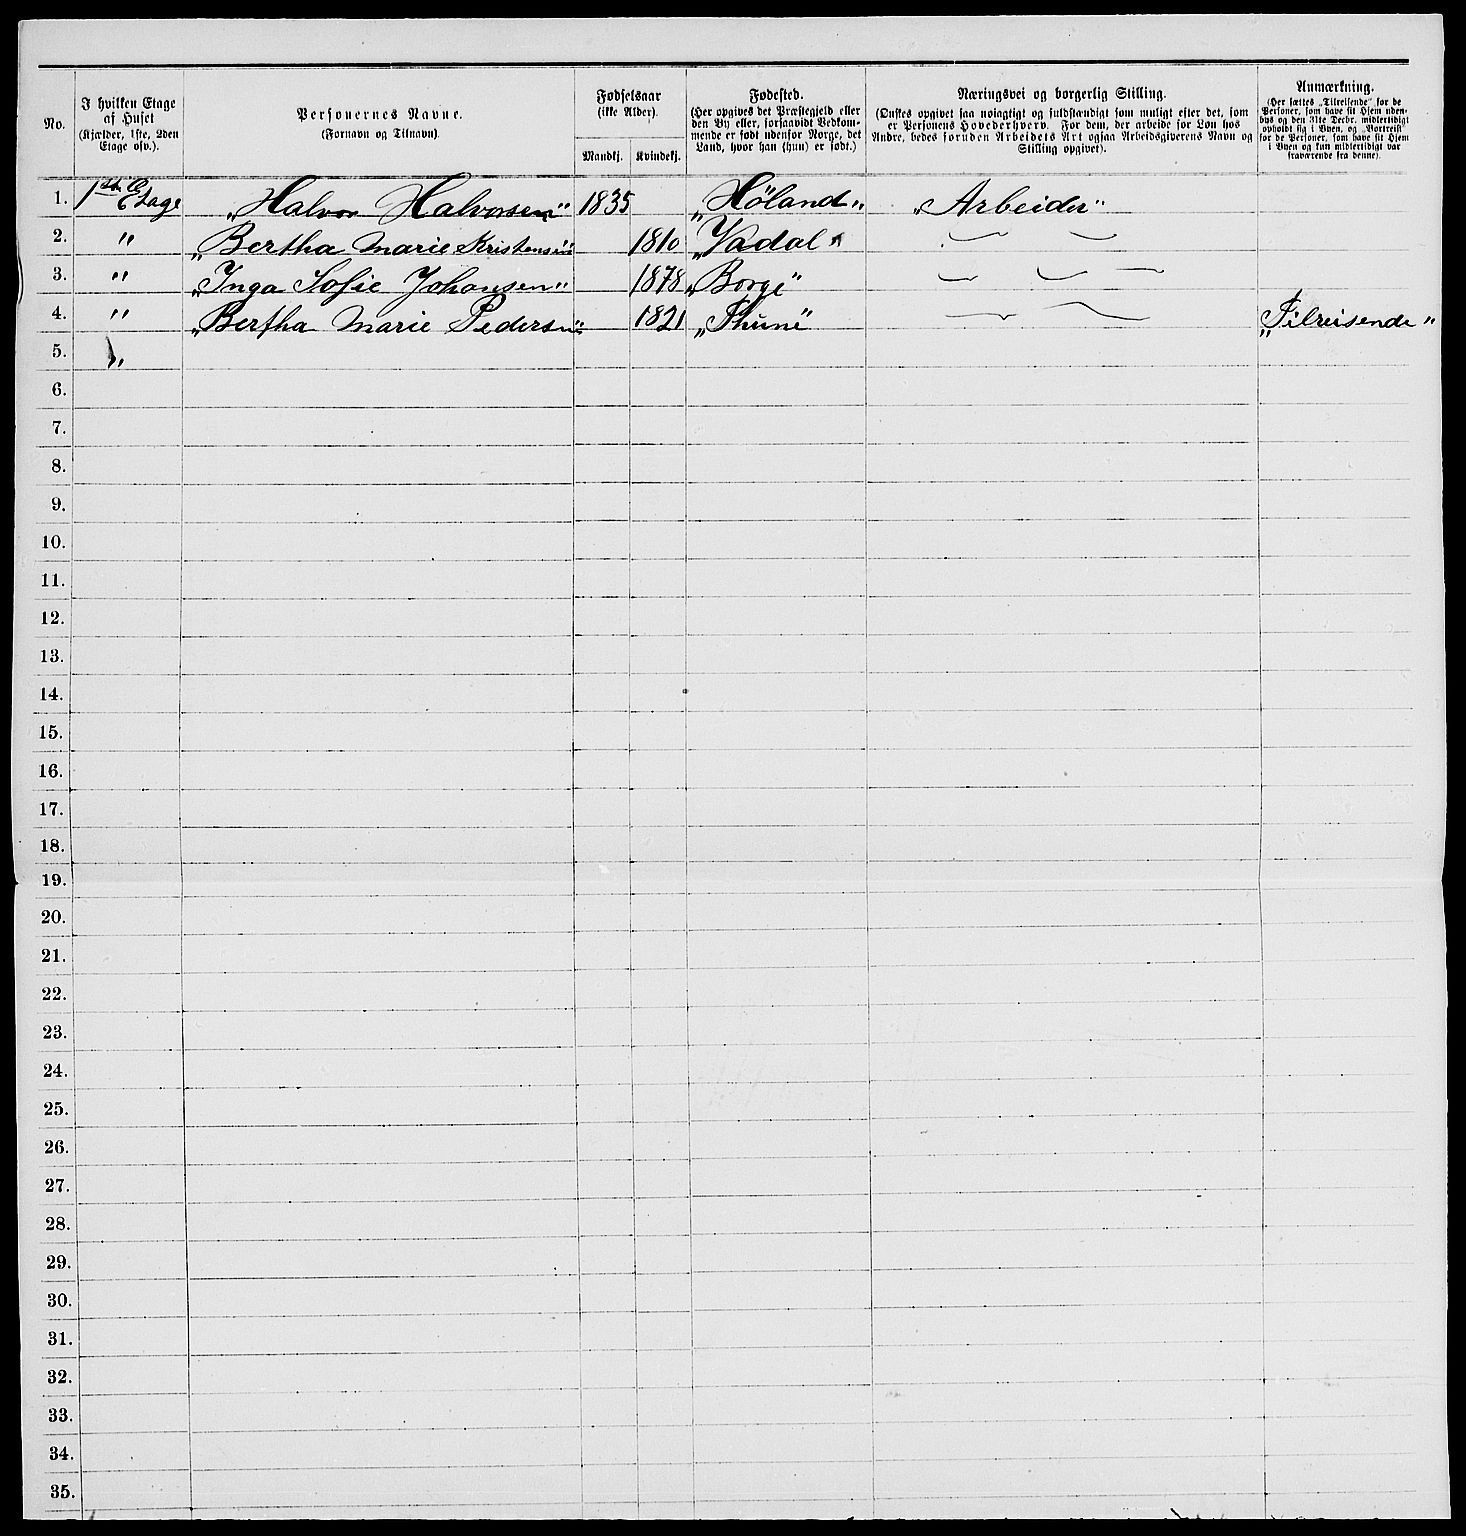 No.
I hvilken Etage
af Huset
(Kjælder, 1ste, 2den
Etage osv.).
Personernes Navne.
(Fornavn og Tilnavn).
Fødselsaar
(ikke Alder).
Mandkj. Kvindekj.
Fødested.
(Her opgives det Præstegjeld eller
den By eller, forsaavidt Vedkom-
mende er født udenfor Norge, det
Land, hvor han (hun) er født.)
Næringsvei og borgerlig Stilling.
(Ønskes opgivet saa nøiagtigt og fuldstændigt som muligt efter det, som
er Personens Hovederhverv. For dem, der arbeide for Løn hos
Andre, bedes foruden Arbeidets Art ogsaa Arbeidsgiverens Navn og
Stilling opgivet).
Anmærkning.
(Her sættes „Tilreisende" for de
Personer, som have sit Hjem uden-
bys og den 31te Decbr. midlertidigt
opholdt sig i Byen, og „Bortreist"
for de Personer, som have sit Hjem
i Byen og kun midlertidigt var
fraværende fra denne).
1. 1ste Etage „Halvor Halvorsen" 1835 „Høland" „Arbeider"
2. " „Bertha Marie Kristensen" 1810 „Vadal"
3. " „Inga Sofie Johansen" 1878 „Borge"
4. " „Bertha Marie Pedersen" 1821 „Thune" „Tilreisende"
5. "
6.
7.
8.
9.
10.
11.
12.
13.
14.
15.
16.
17.
18.
19.
20.
21.
22.
23.
24.
25.
26.
27.
28.
29.
30.
31.
32.
33.
34.
35.